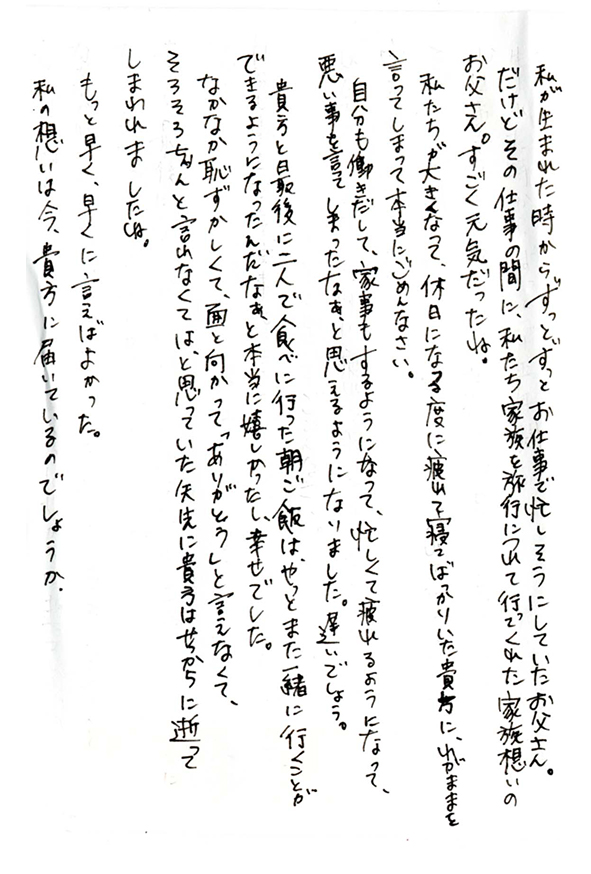 私が生まれた時からずっとずっとお仕事で忙しそうにしていたお父さん。
だけどその仕事の間に、私たち家族を旅行につれて行ってくれた家族想いの
お父さん。すごく元気だったね。
私たちが大きくなって、休日になる度に疲れて寝てばっかりいた貴方に、わがままを
言ってしまって本当にごめんなさい。
自分も働きだして、家事もするようになって、忙しくて疲れるようになって、
悪い事を言ってしまったなぁと思えるようになりました。遅いでしょう。
貴方と最後に二人で食べに行った朝ご飯は、やっとまた一緒に行くことが
できるようになったんだなぁと本当に嬉しかったし、幸せでした。
なかなか恥ずかしくて、面と向かって「ありがとう」と言えなくて、
そろそろちゃんと言わなくては、と思っていた矢先に貴方はせっかちに逝って
しまわれましたね。
もっと早く、早くに言えばよかった。
私の想いは今、貴方に届いているのでしょうか.